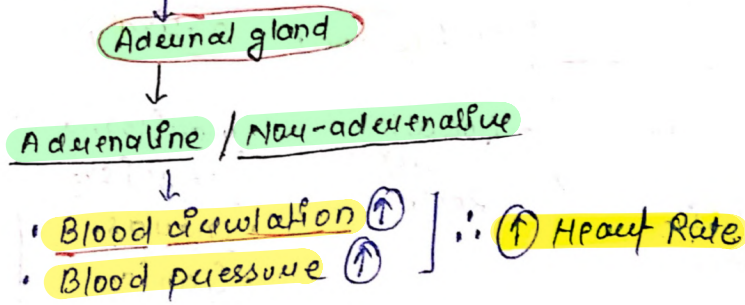 Adrenal gland
Adrenaline / Nor-adrenaline
• Blood circulation ↑
• Blood pressure ↑
∴ ↑ Heart Rate